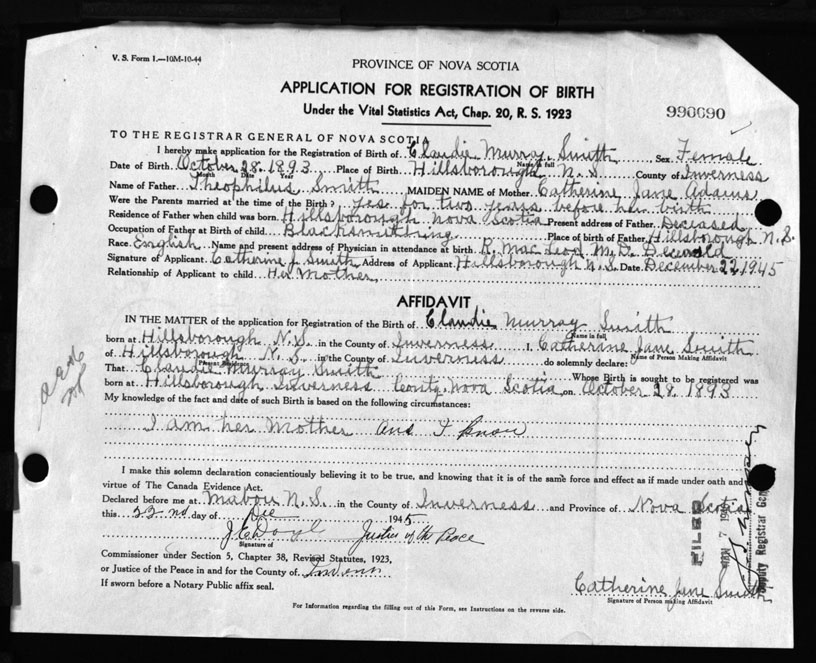 V. S. Form 1.—10M-10-44
PROVINCE OF NOVA SCOTIA
APPLICATION FOR REGISTRATION OF BIRTH
Under the Vital Statistics Act, Chap. 20, R. S. 1923
990690
TO THE REGISTRAR GENERAL OF NOVA SCOTIA
I hereby make application for the Registration of Birth of Claudie Murray Smith Sex Female
Name in full
Date of Birth October 28. 1893 Place of Birth Hillsborough N.S County of Inverness
Month Date Year
Name of Father Theophilus Smith MAIDEN NAME of Mother Catherine Jane Adams
Were the Parents married at the time of the Birth? yes for two years before her birth
Residence of Father when child was born Hillsborough Nova Scotia Present address of Father Deceased
Occupation of Father at Birth of child Blacksmithing Place of birth of Father Hillsborough N.S.
Race English Name and present address of Physician in attendance at birth R. MacLeod M.D.
Signature of Applicant Catherine J Smith Address of Applicant Hillsborough N.S. Date December 22, 1945
Relationship of Applicant to child Her Mother
AFFIDAVIT
IN THE MATTER of the application for Registration of the Birth of Claudie Murray Smith
Name in full
born at Hillsborough N.S. in the County of Inverness I, Catherine Jane Smith
Name of Person Making Affidavit
of Hillsborough N.S. in the County of Inverness do solemnly declare:
That Claudie Murray Smith Whose Birth is sought to be registered was
born at Hillsborough Inverness Conty, Nova Scotia, on October 28. 1893
My knowledge of the fact and date of such Birth is based on the following circumstances:
I am her Mother and I know
I make this solemn declaration conscientiously believing it to be true, and knowing that it is of the same force and effect as if made under oath and
virtue of The Canada Evidence Act.
Declared before me at Mabou N.S. in the County of Inverness and Province of Nova Scotia
this 22nd day of Dec 1945
Justice of the Peace
Signature of
Commissioner under Section 5, Chapter 38, Revised Statutes, 1923,
or Justice of the Peace in and for the County of Inverness
If sworn before a Notary Public affix seal.
Catherine Jane Smith
Signature of Person making Affidavit
For Information regarding the filling out of this Form, see Instructions on the reverse side.
FILED
Deputy Registrar Gen